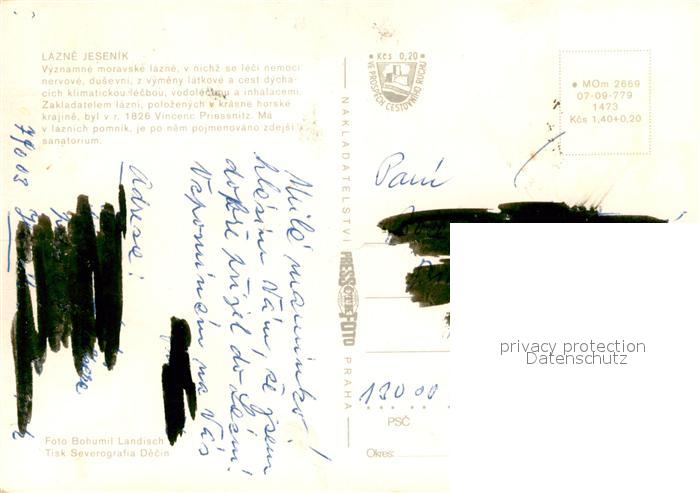 LÁZNĚ JESENÍK
Významné moravské lázně, v nichž se léčí nemoci
nervové, duševní, z výměny látkové a cest dýcha-
cích klimatickou léčbou, vodoléčbou a inhalacemi.
Zakladatelem lázní, položených v krásné horské
krajině, byl v r. 1826 Vincenc Priessnitz. Má
v lázních pomník, je po něm pojmenováno zdejší
sanatorium.
Milá maminko!
hlásím Vám, že jsem
dobře přijel do
Vzpomínám na Vás
Adresa:
79003
Foto Bohumil Landisch
Tisk Severografia Děčín
NAKLADATELSTVÍ PRESSFOTO PRAHA
Kčs 0,20
VE PROSPĚCH CESTOVNÍHO RUCHU
MOm 2669
07-09-779
1473
Kčs 1,40+0,20
Paní
privacy protection
Datenschutz
PSČ
Okres: